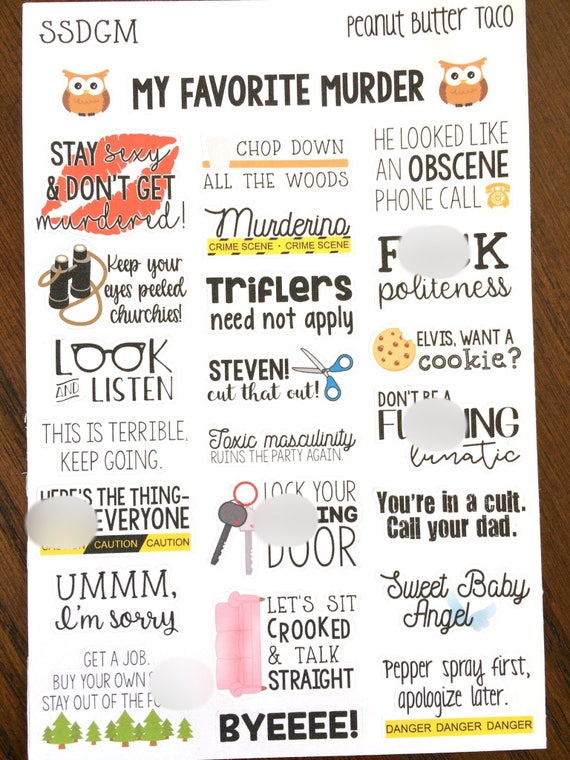 SSDGM
Peanut Butter Taco
MY FAVORITE MURDER
STAY sexy
& DON'T GET
murdered!
Keep your
eyes peeled
churchies!
LOOK
AND LISTEN
THIS IS TERRIBLE,
KEEP GOING.
HERE'S THE THING-
EVERYONE
CAUTION CAUTION CAUTION
UMMM,
I'm sorry
GET A JOB.
BUY YOUR OWN
STAY OUT OF THE
CHOP DOWN
ALL THE WOODS
Murderino
CRIME SCENE • CRIME SCENE
TRIFLERS
need not apply
STEVEN!
cut that out!
Toxic masculinity
RUINS THE PARTY AGAIN.
LOCK YOUR
DOOR
LET'S SIT
CROOKED
& TALK
STRAIGHT
BYEEEE!
HE LOOKED LIKE
AN OBSCENE
PHONE CALL
politeness
ELVIS, WANT A
cookie?
DON'T BE A
lunatic
You're in a cult.
Call your dad.
Sweet Baby
Angel
Pepper spray first,
apologize later.
DANGER DANGER DANGER